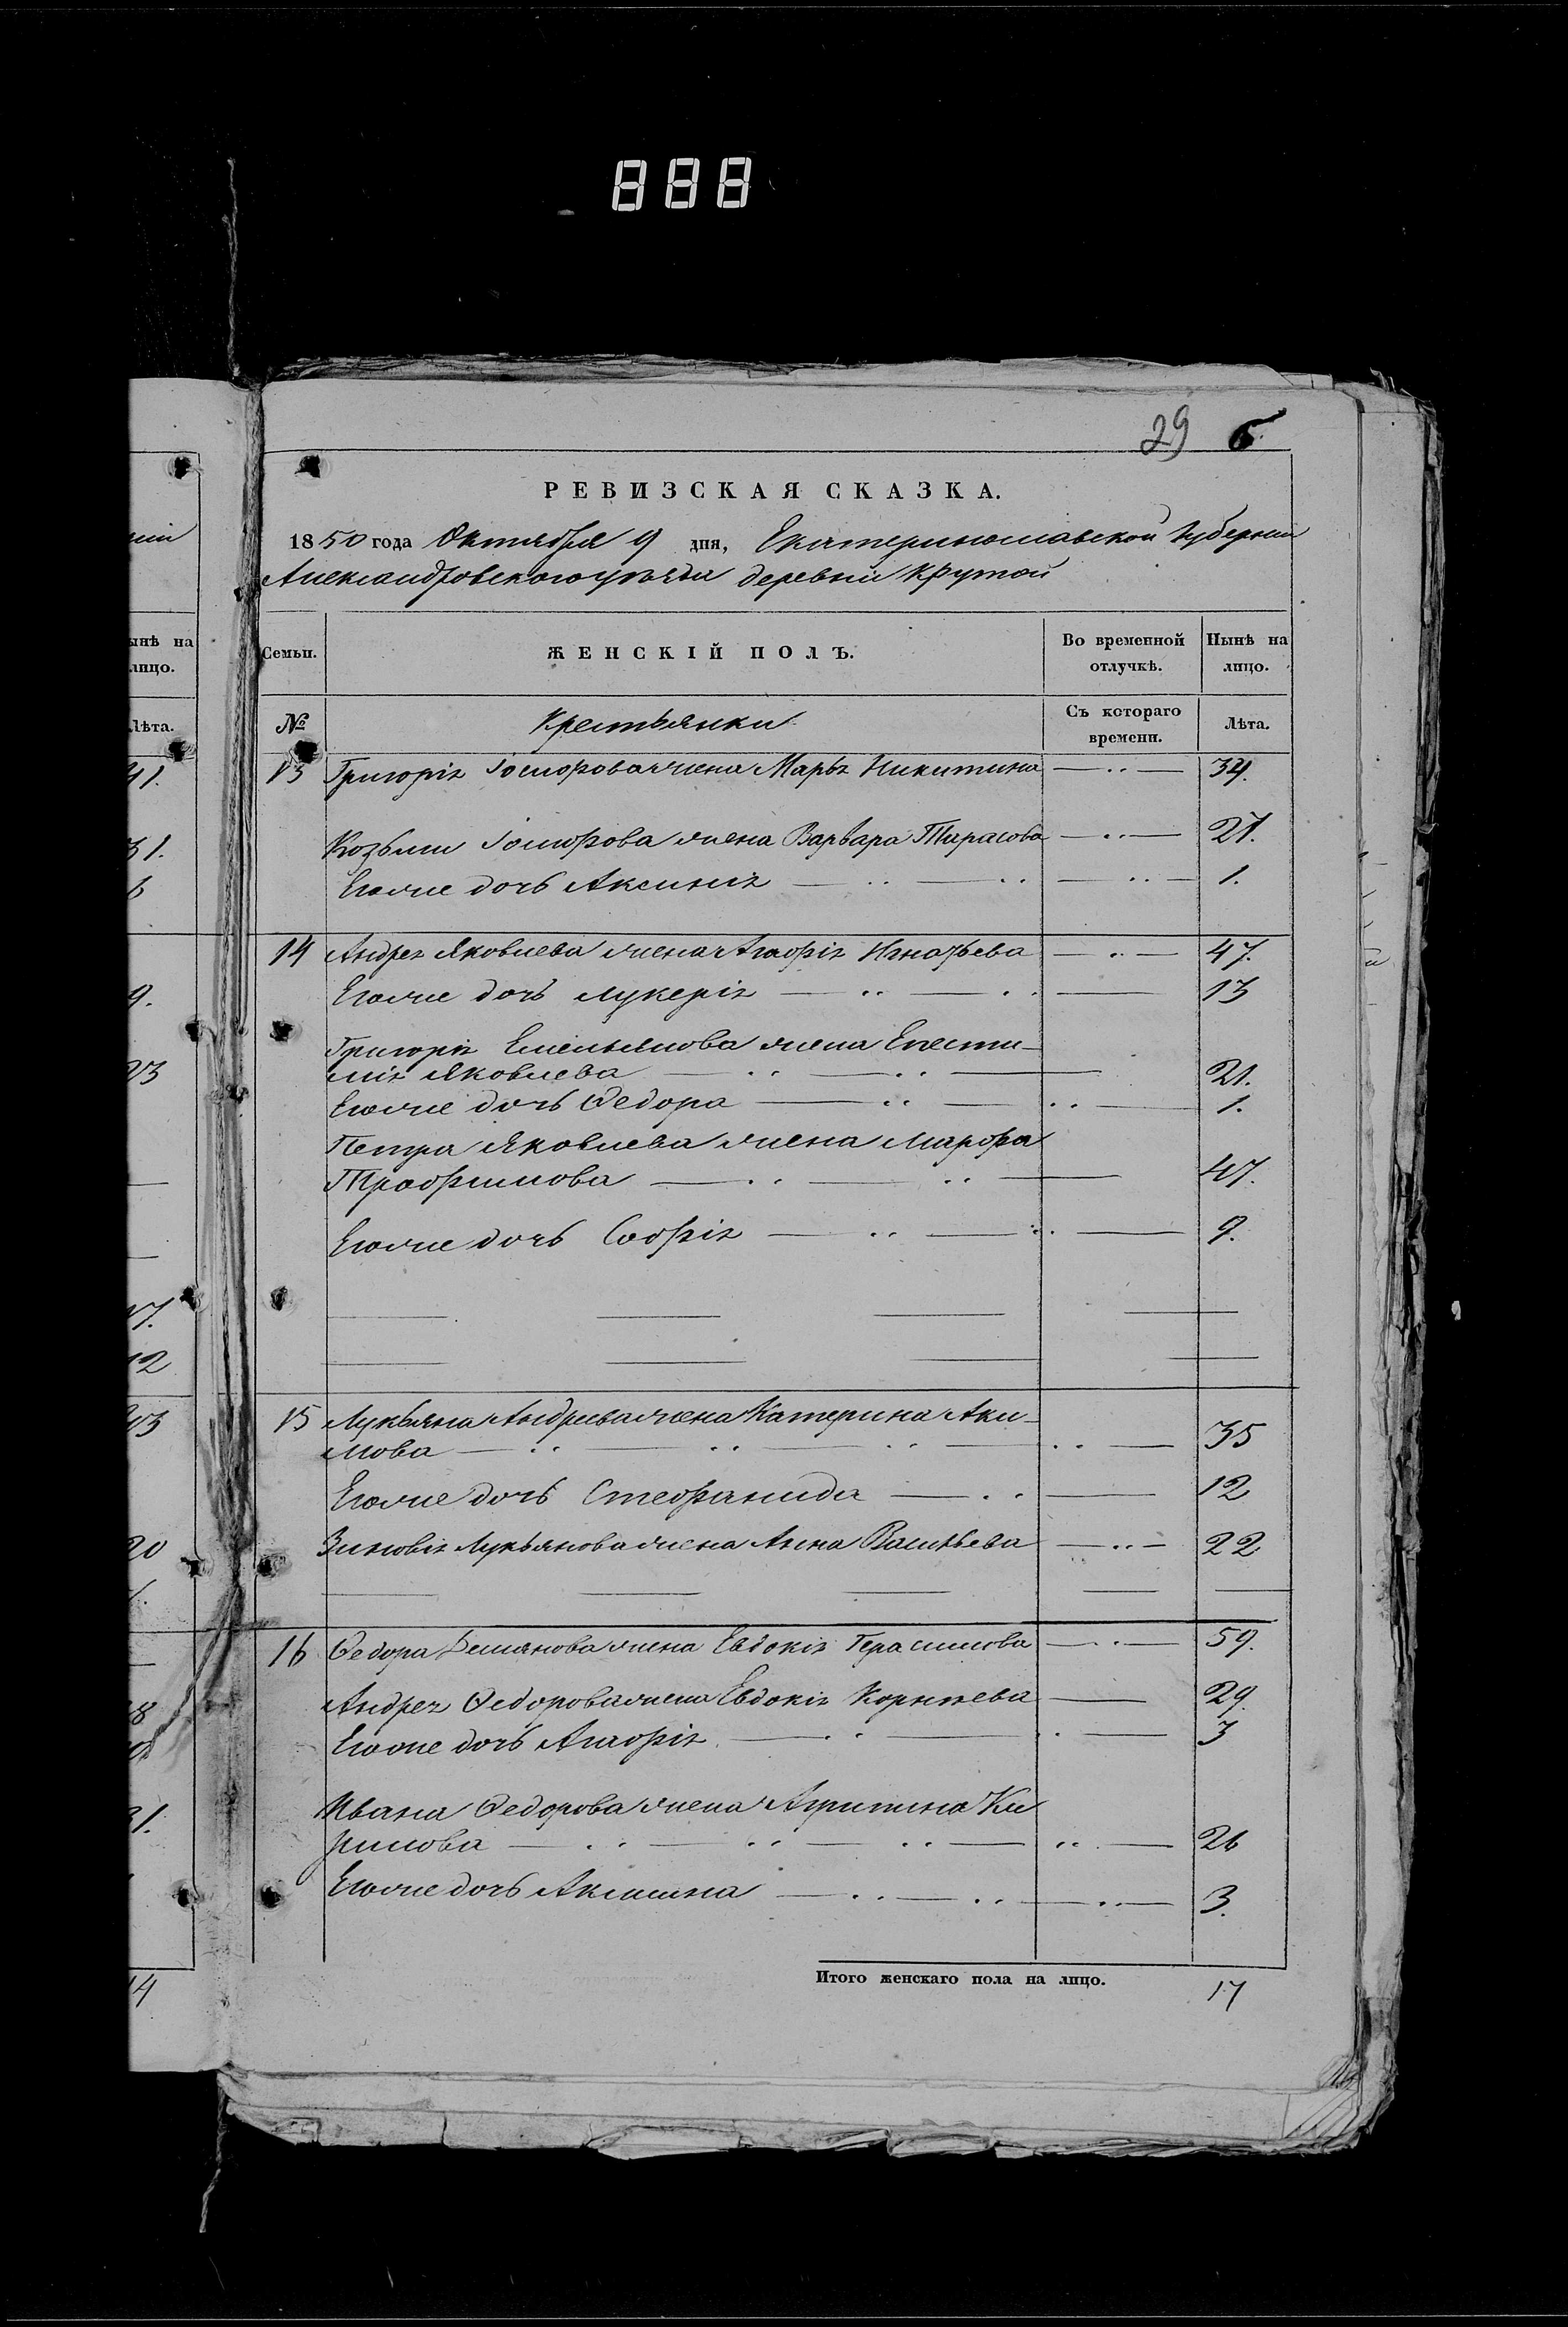 888
29 6.
РЕВИЗСКАЯ СКАЗКА.
1850 года Октября 9 дня, Екатеринославской Губернии
Александровского уѣзда деревни Крутой
Семьи. ЖЕНСКІЙ ПОЛЪ. Во временной отлучкѣ. Нынѣ на лицо.
№ Крестьянки Съ котораго времени. Лѣта.
13 Григорія жена Марья Никитина 34.
Козьмы жена Варвара Тарасова 27.
Егоже дочь Аксинія 1.
14 Андрея Яковлева жена Агафія Игнатьева 47.
Егоже дочь Лукерія 13
Григорія Емельянова жена Епести-
мія Яковлева 21.
Егоже дочь Федора 1.
Петра Яковлева жена Марфа
Трофимова 47.
Егоже дочь Софія 9.
15 Лукьяна Андреева жена Катерина Аки-
мова 35
Егоже дочь Стефанида 12
Зиновія Лукьянова жена Анна Васильева 22
16 Федора Демянова жена Евдокія Герасимова 59.
Андрея Федорова жена Евдокія Корнѣева 29.
Егоже дочь Агафія 3
Ивана Федорова жена Агрипина Ки
рилова 26
Егоже дочь 3.
Итого женскаго пола на лицо. 17
ынѣ на
лицо.
Лѣта.